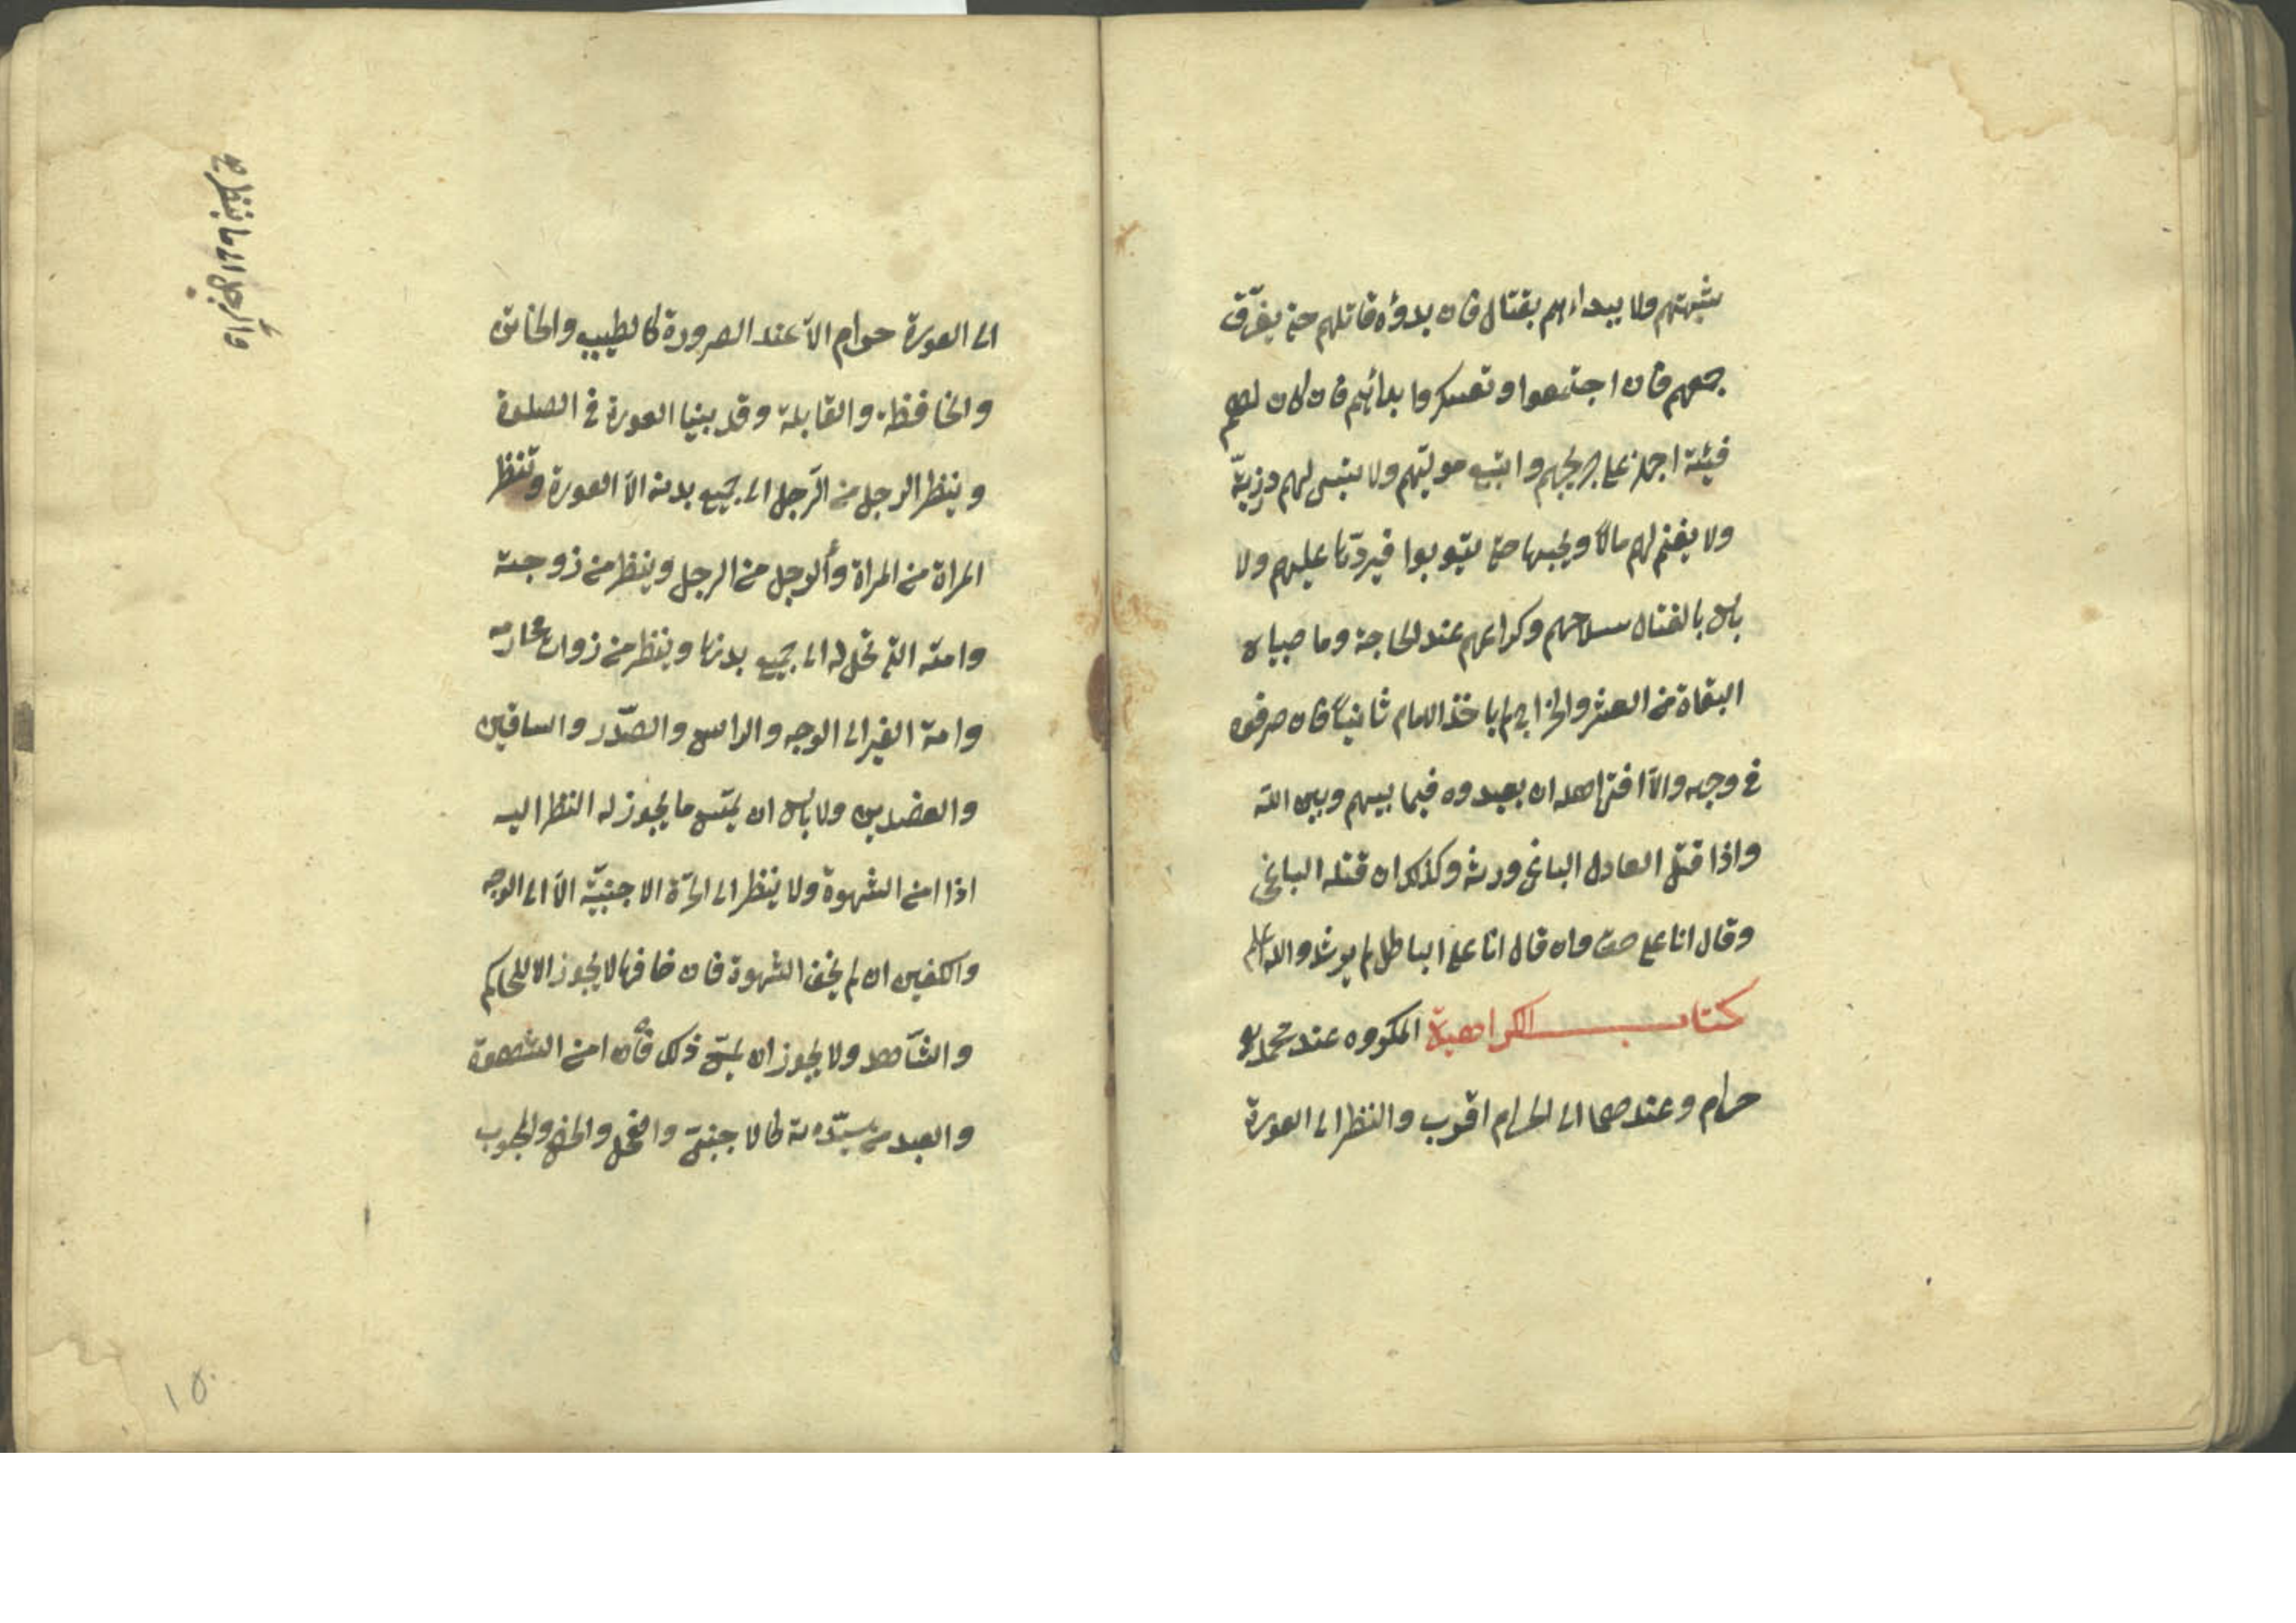 شبهتهم ولا يبداءهم بقتال فان بدؤه قاتلهم حتى يفرّق
جمعهم فان اجتمعوا وتعسكروا بدائهم فان كان لهم
فيئة اجهز على جريحهم واتبع موليهم ولا يسبى لهم ذريّة
ولا يغنم لهم مالاً ويحبسها حتى يتوبوا فيردّها عليهم ولا
باس بالقتال بسلاحهم وكراعهم عند الحاجة وما جباه
البغاة من العشر والخراج لم ياخذ الامام ثانياً فان صرفوه
في وجهه والاّ افتى اهله ان يعيدوه فيما بينهم وبين الله
واذا قتل العادل الباغى ورثه وكذلك ان قتله الباغى
وقال انا على حق وان قال انا على الباطل لم يرث والله اعلم
كتاب الكراهية المكروه عند محمد هو
حرام وعندهما الى الحرام اقرب والنظر الى العورة
الى العورة حرام الاّ عند الضرورة كالطبيب والخاتن
والخافظة والقابلة وقد بينا العورة في الصلوة
وينظر الرجل من الرّجل الى جميع بدنه الاّ العورة وتنظر
المراة من المراة والرجل من الرجل وينظر من زوجته
وامته التى تحل له الى جميع بدنها وينظر من ذوات محارمه
وامة الغير الى الوجه والراس والصّدر والساقين
والعضدين ولا باس ان يمسّ ما يجوز له النظر اليه
اذا امن الشهوة ولا ينظر الى الحرّة الاجنبيّة الاّ الى الوجه
والكفين ان لم يخف الشهوة فان خافها لا يجوز الا للحاكم
والشاهد ولا يجوز ان يمسّ ذلك فان امن الشهوة
والعبد من سيّدته كالاجنبى والفحل والخصى والمجبوب
١٥٠